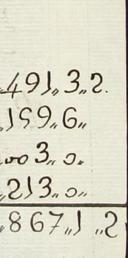 491,,3,,2.
,159,,6,,
,,003,,0,,
,213,,0,,
,,867,,1,,2